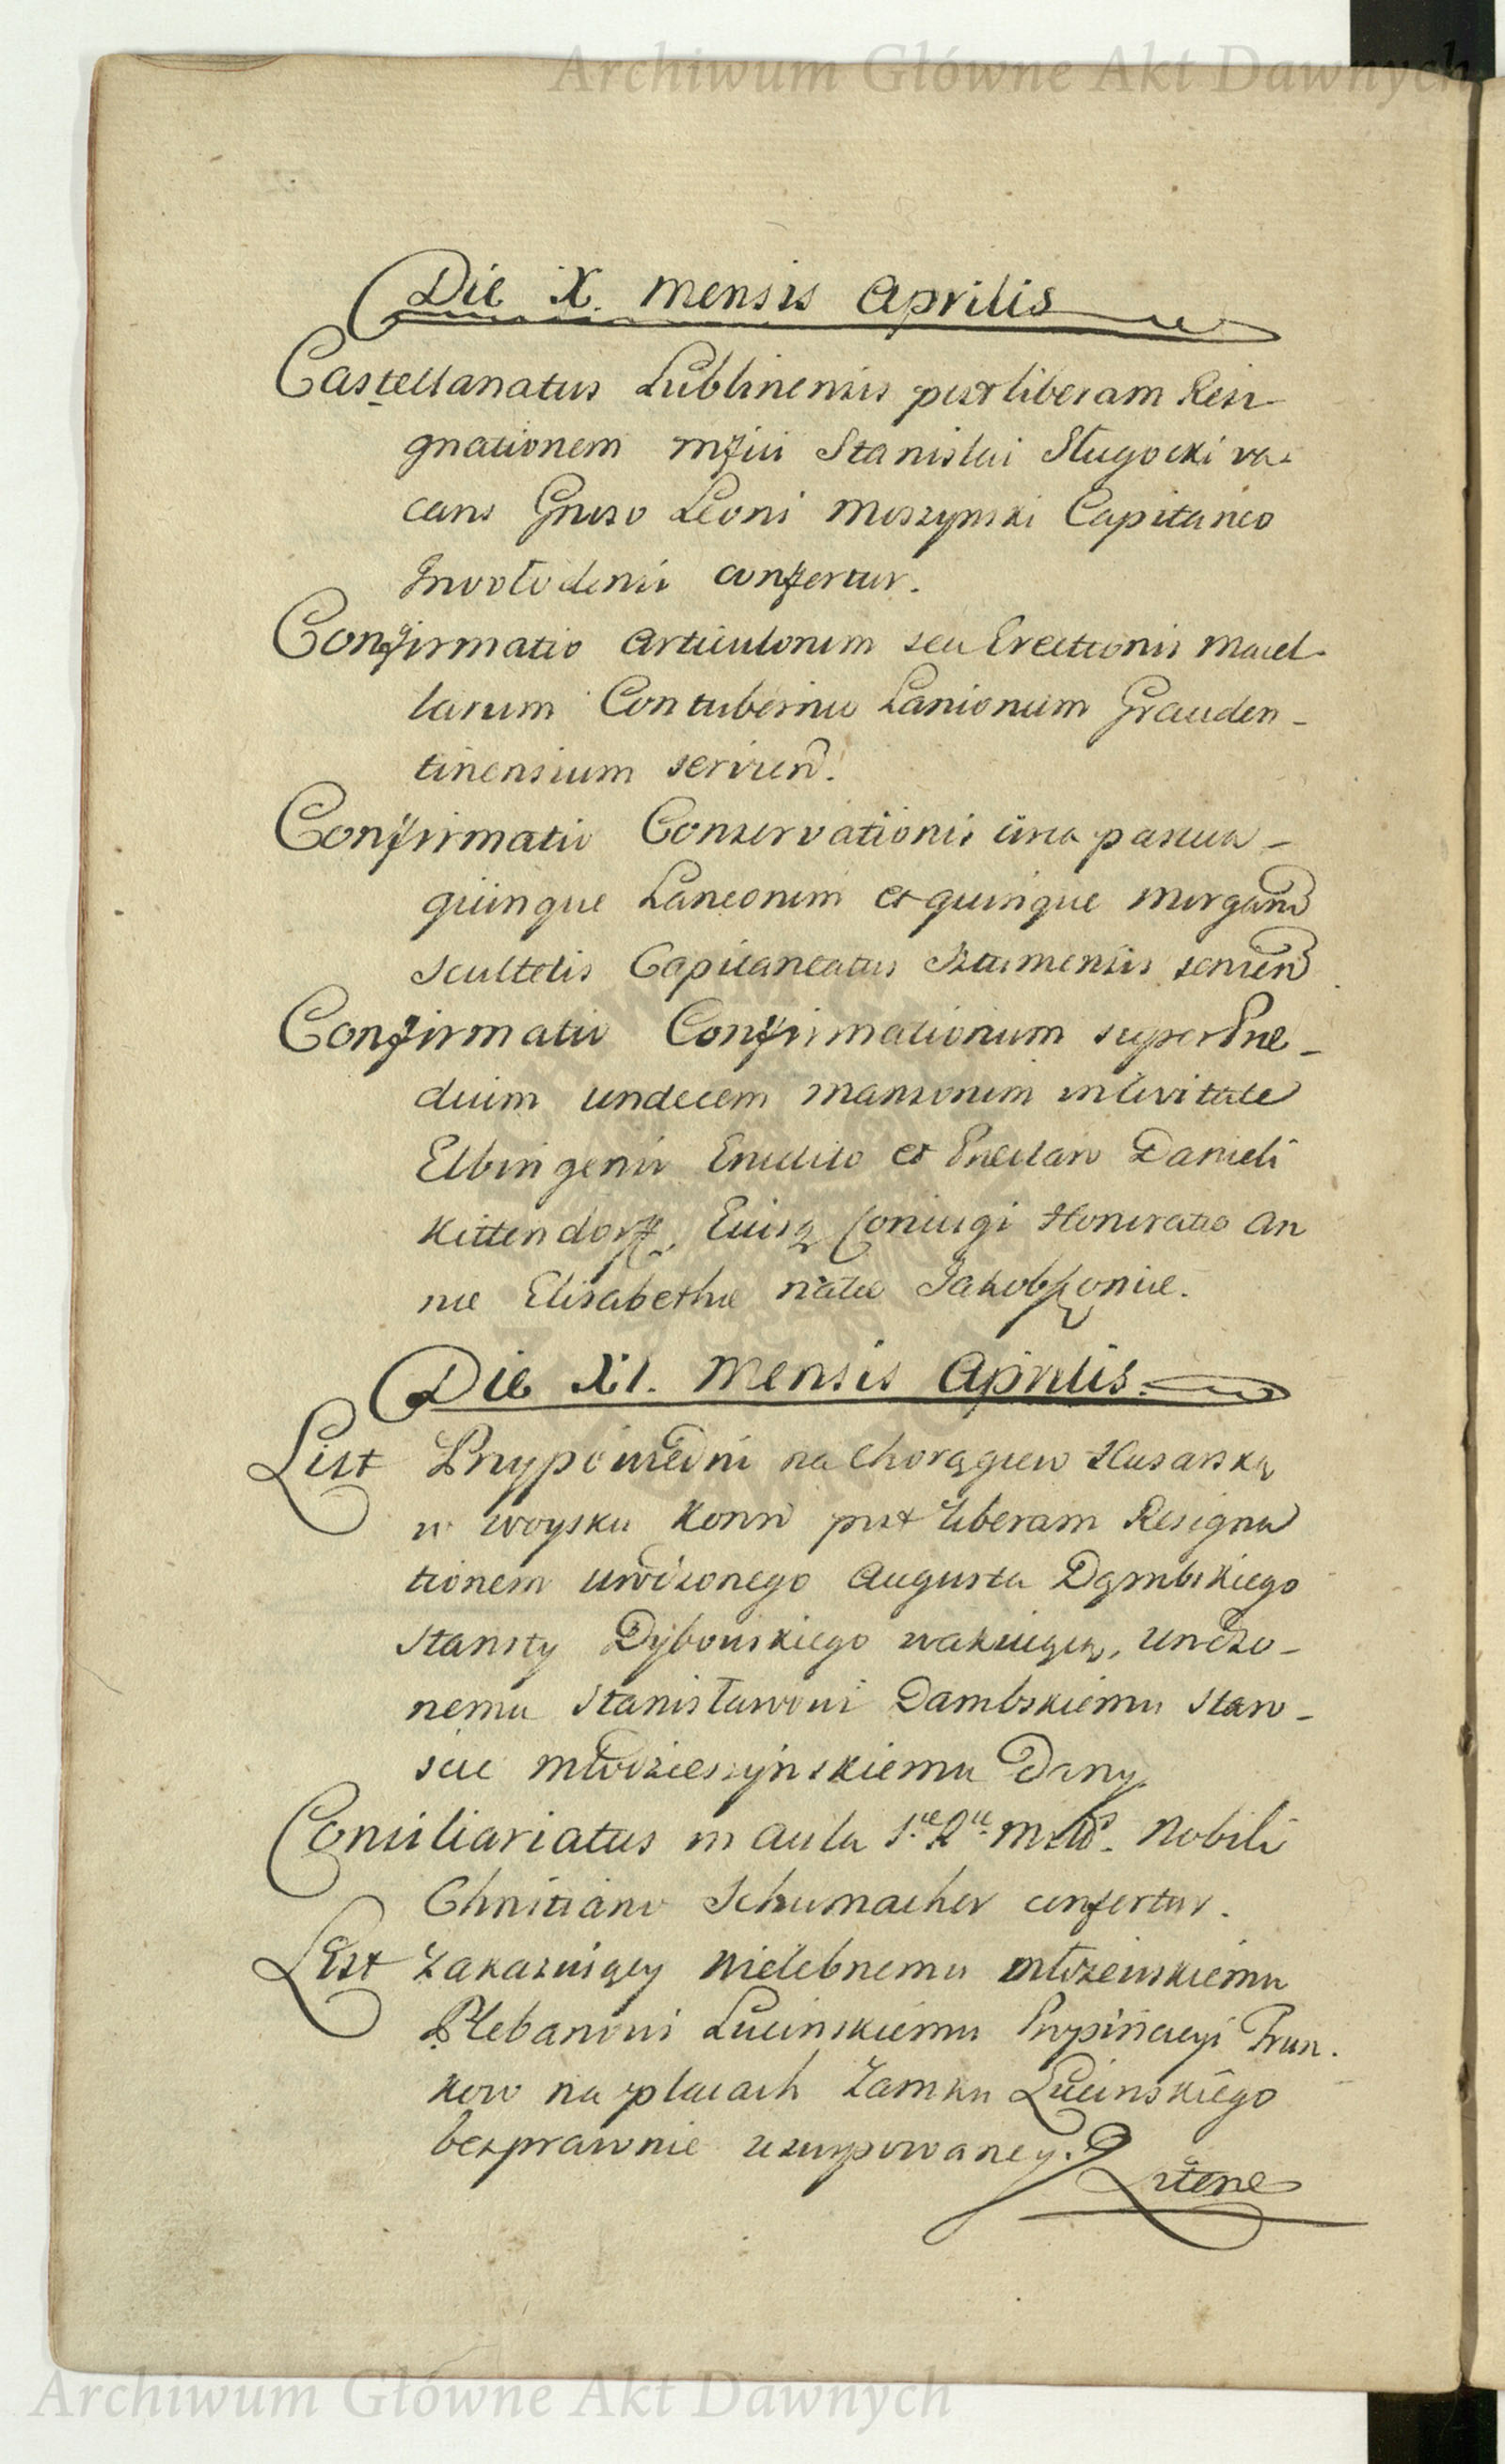 Archiwum Główne Akt Dawnych
Die X. Mensis Aprilis
Castellanatus Lublinensis post liberam Resi-
gnationem Mfici Stanislai Sługocki va-
cans Gnoso Leoni Moszynski Capitaneo
Inowłodensi confertur.
Confirmatio Articulorum seu Erectionis Macel-
larum Contubernio Lanionum Grauden-
tinensium servien.
Confirmatio Conservationis circa pascua
quinque Laneorum et quinque Morgand
Scultetis Capitaneatus Sztumensis servien
Confirmatio Confirmationum super Præ-
dium undecem mansorum in Civitate
Elbingensi Erudito et Præclaro Danieli
Kittendorff, Eiusq Coniugi Honoratæ An
næ Elisabethæ natæ Jakobsoniæ.
Die XI. Mensis Aprilis.
List Przypowiedni na Chorągiew Husarską
w woysku Koron post liberam Resigna
tionem urodzonego Augusta Dąmbskiego
Starosty Dybowskiego wakuiącą, urodzo-
nemu Stanisławowi Dambskiemu Staro-
scie Młodzieszynskiemu Dany.
Consiliariatus in Aula S.æ R.æ Mttis. Nobili
Chrisitiano Schumacher confertur.
List Zakazuiący Wielebnemu
Plebanowi Lucinskiemu Propinacyi Trun-
kow na placach Zamku Lucinskiego
bezprawnie uzurpowaney.
Archiwum Główne Akt Dawnych